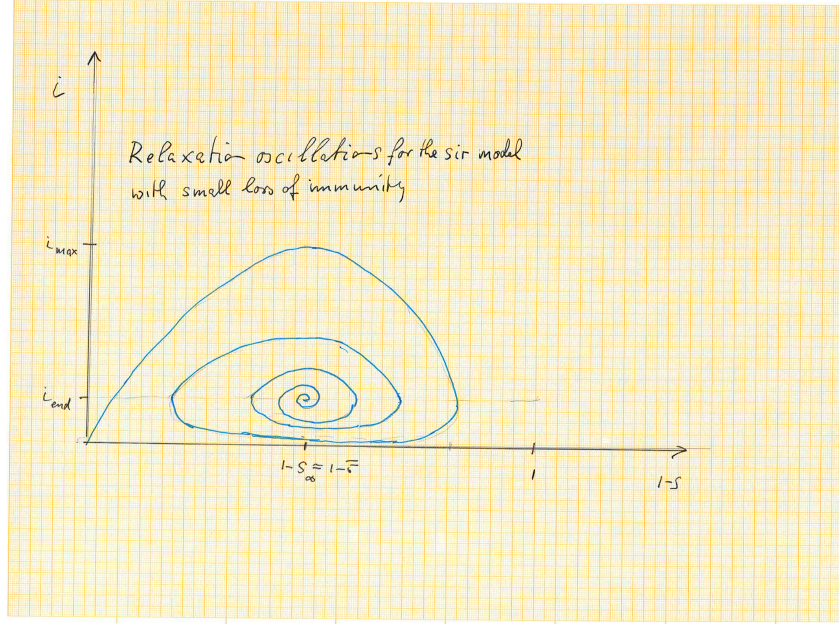 i
Relaxation oscillations for the sir model
with small loss of immunity
i max
i end
1-S∞ ≈ 1-s̄
1
1-S